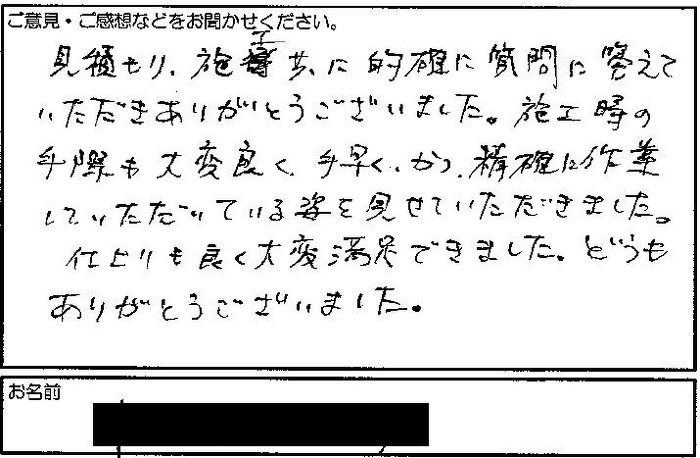 ご意見・ご感想などをお聞かせください。
見積もり、施工共に的確に質問に答えて
いただきありがとうございました。施工時の
手際も大変良く、手早く、かつ、精確に作業
していただいている姿を見せていただきました。
仕上りも良く大変満足できました。どうも
ありがとうございました。
お名前